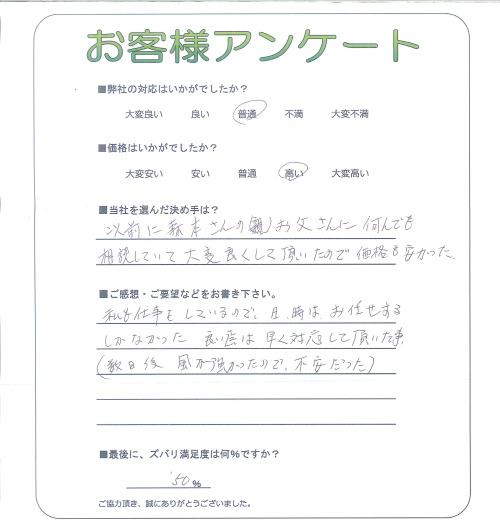 お客様アンケート
■弊社の対応はいかがでしたか？
大変良い 良い 普通 不満 大変不満
■価格はいかがでしたか？
大変安い 安い 普通 高い 大変高い
■当社を選んだ決め手は？
以前に森本さんのお父さんに何んでも
相談していて大変良くして頂いたので価格も安かった.
■ご感想・ご要望などをお書き下さい。
私も仕事をしているので、日、時は お任せする
しかなかった 良い点は早く対応して頂いた事
(数日後 風が強かったので、不安だった)
■最後に、ズバリ満足度は何%ですか？
50 %
ご協力頂き、誠にありがとうございました。